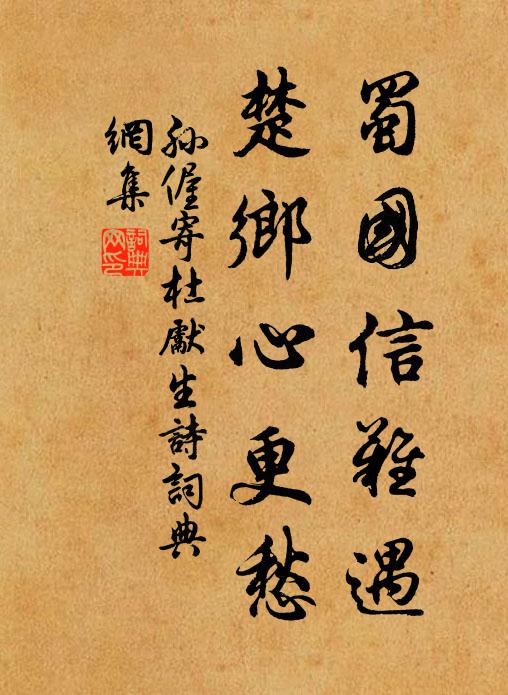 蜀國信難遇
楚鄉心更愁
孫偓寄杜獻生詩詞典
網集
詞典
网印